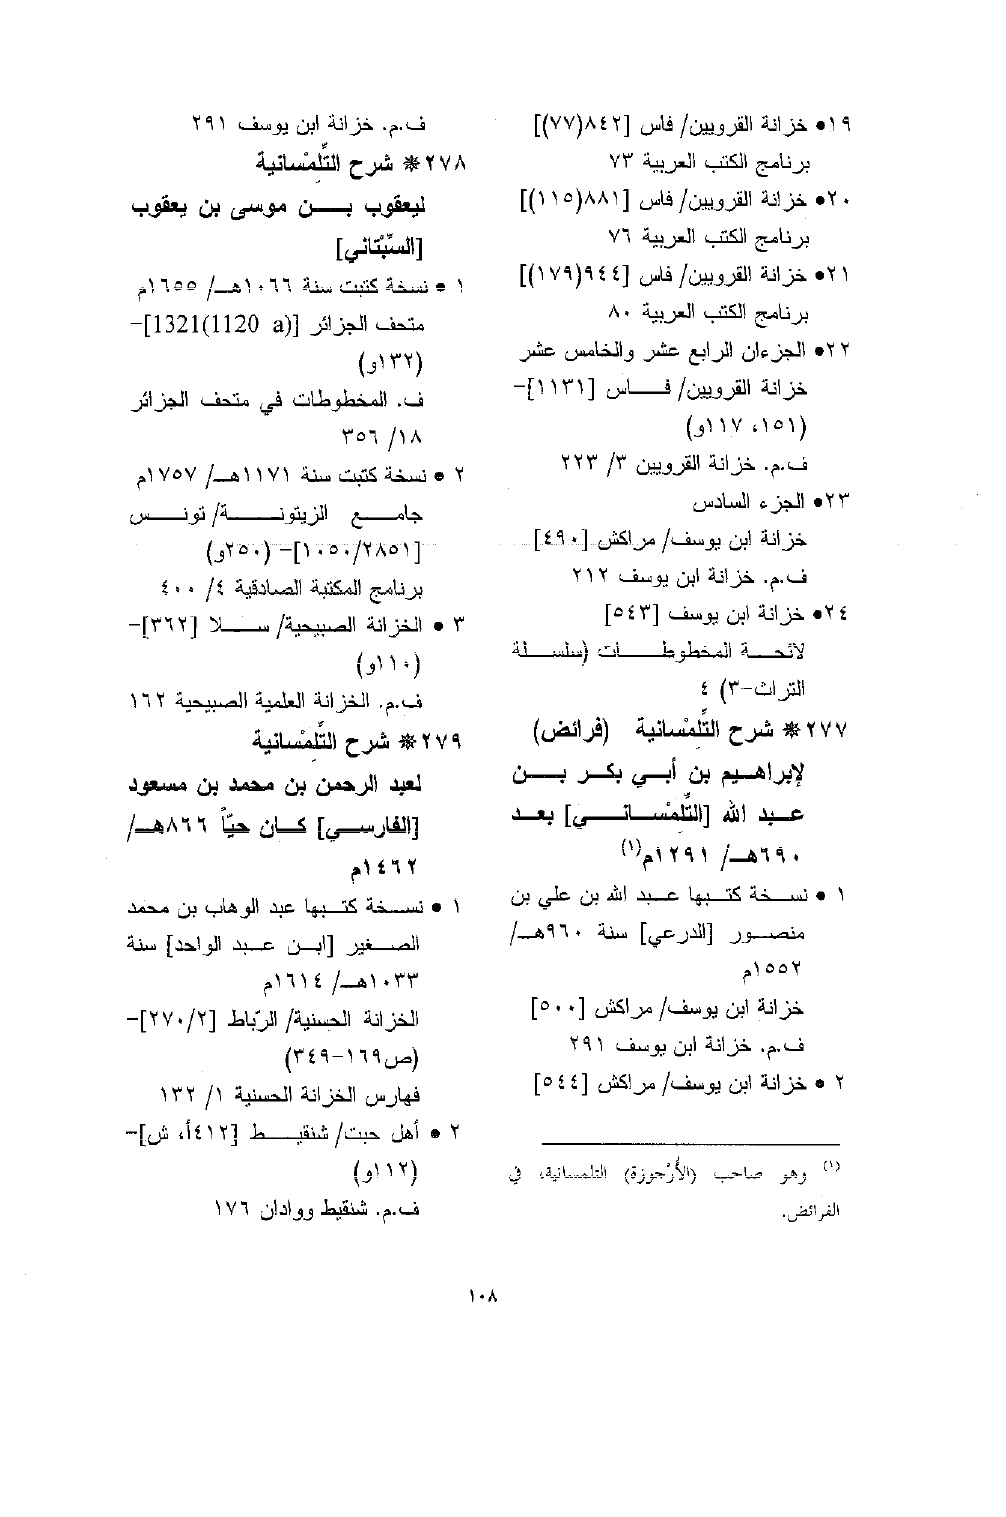 ١٩• خزانة القرويين/ فاس [٨٤٢(٧٧)]
برنامج الكتب العربية ٧٣
٢٠• خزانة القرويين/ فاس [٨٨١(١١٥)]
برنامج الكتب العربية ٧٦
٢١• خزانة القرويين/ فاس [٩٤٤(١٧٩)]
برنامج الكتب العربية ٨٠
٢٢• الجزءان الرابع عشر والخامس عشر
خزانة القرويين/ فاس [١١٣١]-
(١٥١، ١١٧و)
ف.م. خزانة القرويين ٣/ ٢٢٣
٢٣• الجزء السادس
خزانة ابن يوسف/ مراكش [٤٩٠]
ف.م. خزانة ابن يوسف ٢١٢
٢٤• خزانة ابن يوسف [٥٤٣]
لائحة المخطوطات (سلسلة
التراث-٣) ٤
٢٧٧* شرح التِّلِمْسانية (فرائض)
لإبراهيم بن أبي بكر بن
عبد الله [التِّلِمْساني] بعد
٦٩٠هـ/ ١٢٩١م(١)
١ • نسخة كتبها عبد الله بن علي بن
منصور [الدرعي] سنة ٩٦٠هـ/
١٥٥٢م
خزانة ابن يوسف/ مراكش [٥٠٠]
ف.م. خزانة ابن يوسف ٢٩١
٢ • خزانة ابن يوسف/ مراكش [٥٤٤]
(١) وهو صاحب (الأُرْجوزة) التلمسانية، في
الفرائض.
ف.م. خزانة ابن يوسف ٢٩١
٢٧٨* شرح التِّلِمْسانية
ليعقوب بن موسى بن يعقوب
[السِّبْتاني]
١ • نسخة كتبت سنة ١٠٦٦هـ/ ١٦٥٥م
متحف الجزائر [1321(1120 a)]-
(١٣٢و)
ف. المخطوطات في متحف الجزائر
١٨/ ٣٥٦
٢ • نسخة كتبت سنة ١١٧١هـ/ ١٧٥٧م
جامع الزيتونة/ تونس
[١٠٥٠/٢٨٥١]- (٢٥٠و)
برنامج المكتبة الصادقية ٤/ ٤٠٠
٣ • الخزانة الصبيحية/ سلا [٣٦٢]-
(١١٠و)
ف.م. الخزانة العلمية الصبيحية ١٦٢
٢٧٩* شرح التِّلِمْسانية
لعبد الرحمن بن محمد بن مسعود
[الفارسي] كان حيّاً ٨٦٦هـ/
١٤٦٢م
١ • نسخة كتبها عبد الوهاب بن محمد
الصغير [ابن عبد الواحد] سنة
١٠٣٣هـ/ ١٦١٤م
الخزانة الحسنية/ الرّباط [٢٧٠/٢]-
(ص١٦٩-٣٤٩)
فهارس الخزانة الحسنية ١/ ١٣٢
٢ • أهل حبت/ شنقيط [٤١٢أ، ش]-
(١١٢و)
ف.م. شنقيط ووادان ١٧٦
١٠٨